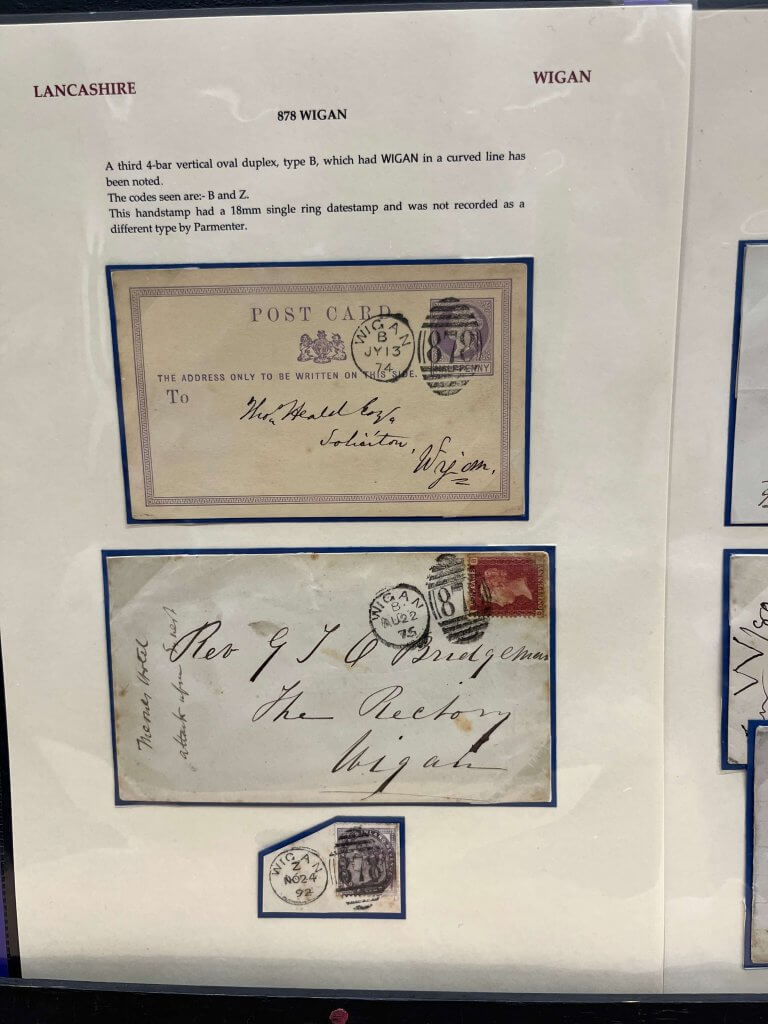 LANCASHIRE WIGAN
878 WIGAN
A third 4-bar vertical oval duplex, type B, which had WIGAN in a curved line has
been noted.
The codes seen are:- B and Z.
This handstamp had a 18mm single ring datestamp and was not recorded as a
different type by Parmenter.
POST CARD
WIGAN
B
JY 13
74
878
HALFPENNY
THE ADDRESS ONLY TO BE WRITTEN ON THIS SIDE.
To
Thos Heald Esq
Solicitor
Wigan.
WIGAN
B
AU 22
75
87
Rev G T O Bridgeman
The Rectory
Wigan
WIGAN
Z
NO 24
92
878